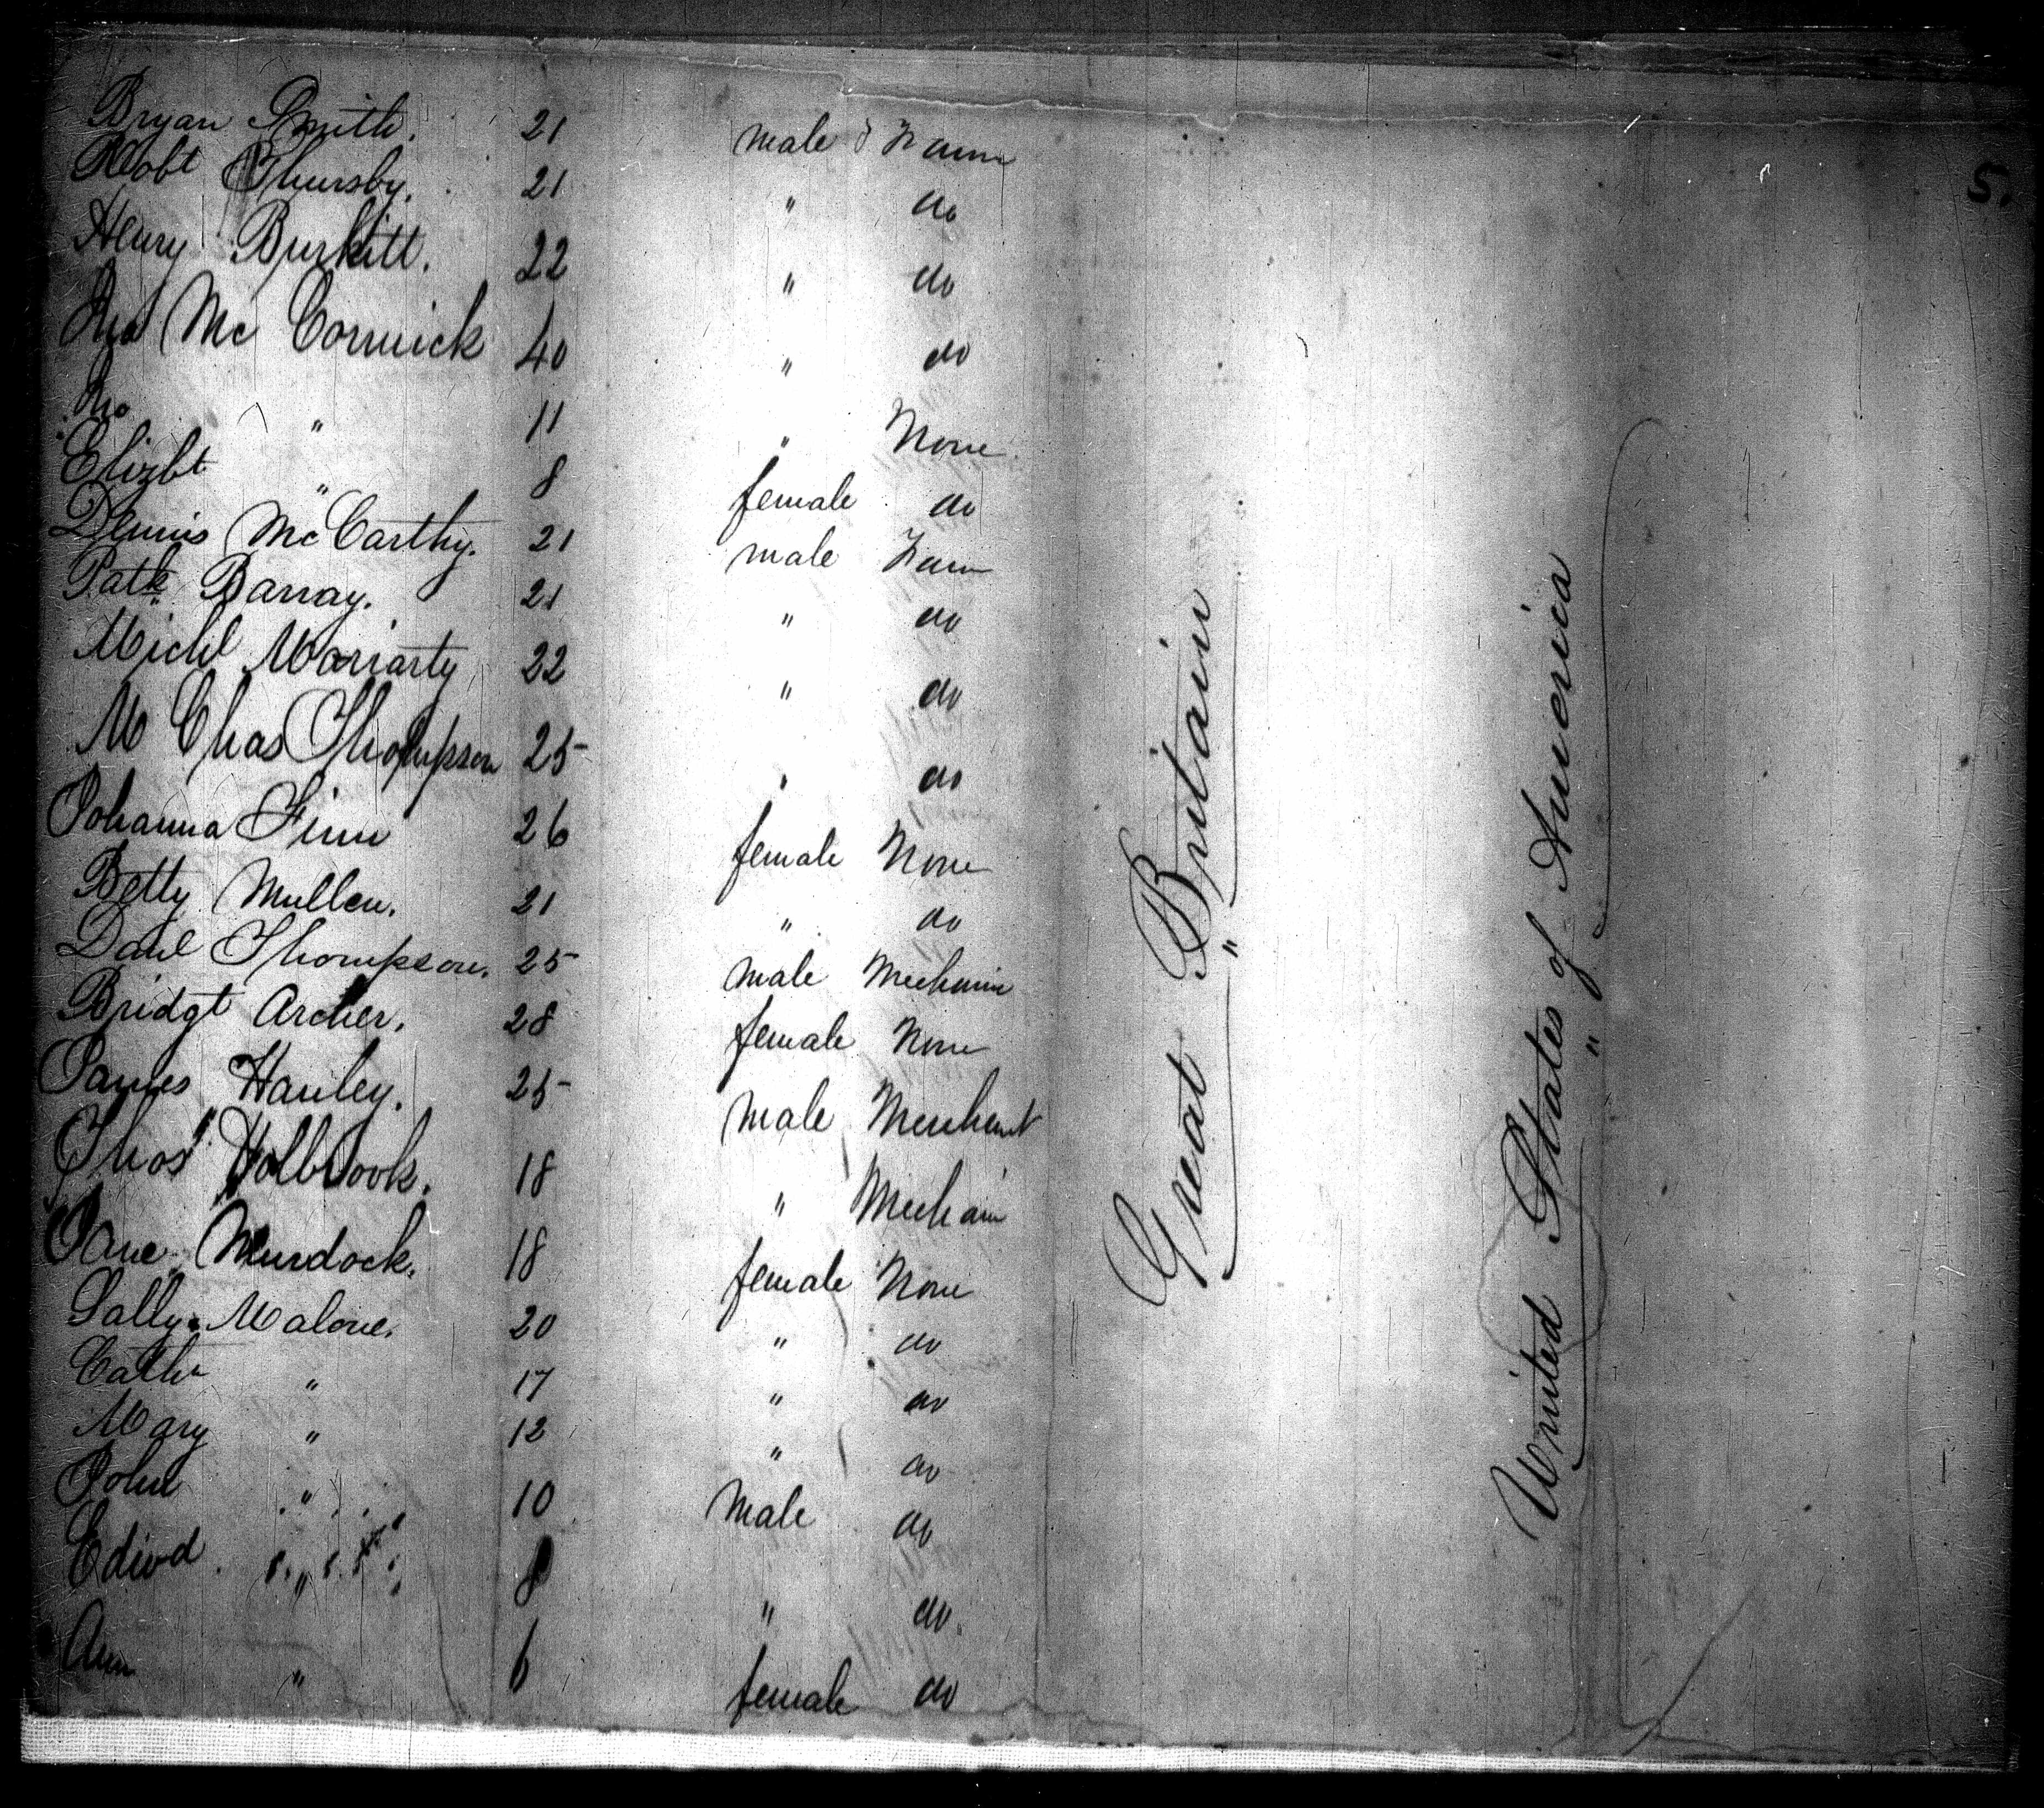 5.
Bryan Smith. 21 male Farm
Robt Thursby. 21 " do
Henry Burkitt. 22 " do
Jno Mc Cormick 40 " do
Jno " 11 " None
Elizbt " 8 female do
Dennis McCarthy. 21 male Farm
Patk Barray. 21 " do
Michl Moriarty 22 " do
M Chas Thompson 25 " do
Johanna Finn 26 female None
Betty Mullen. 21 " do
Danl Thompson. 25 male Mechanic
Bridgt Archer. 28 female None
James Hanley. 25 male Merchant
Thos Holbrook. 18 " Mechani
Jane Murdock. 18 female None
Sally Malone. 20 " do
Cathr " 17 " do
Mary " 12 " do
John " 10 male do
Edwd " 8 " do
Ann " 6 female do
Great Britain
"
United States of America
"